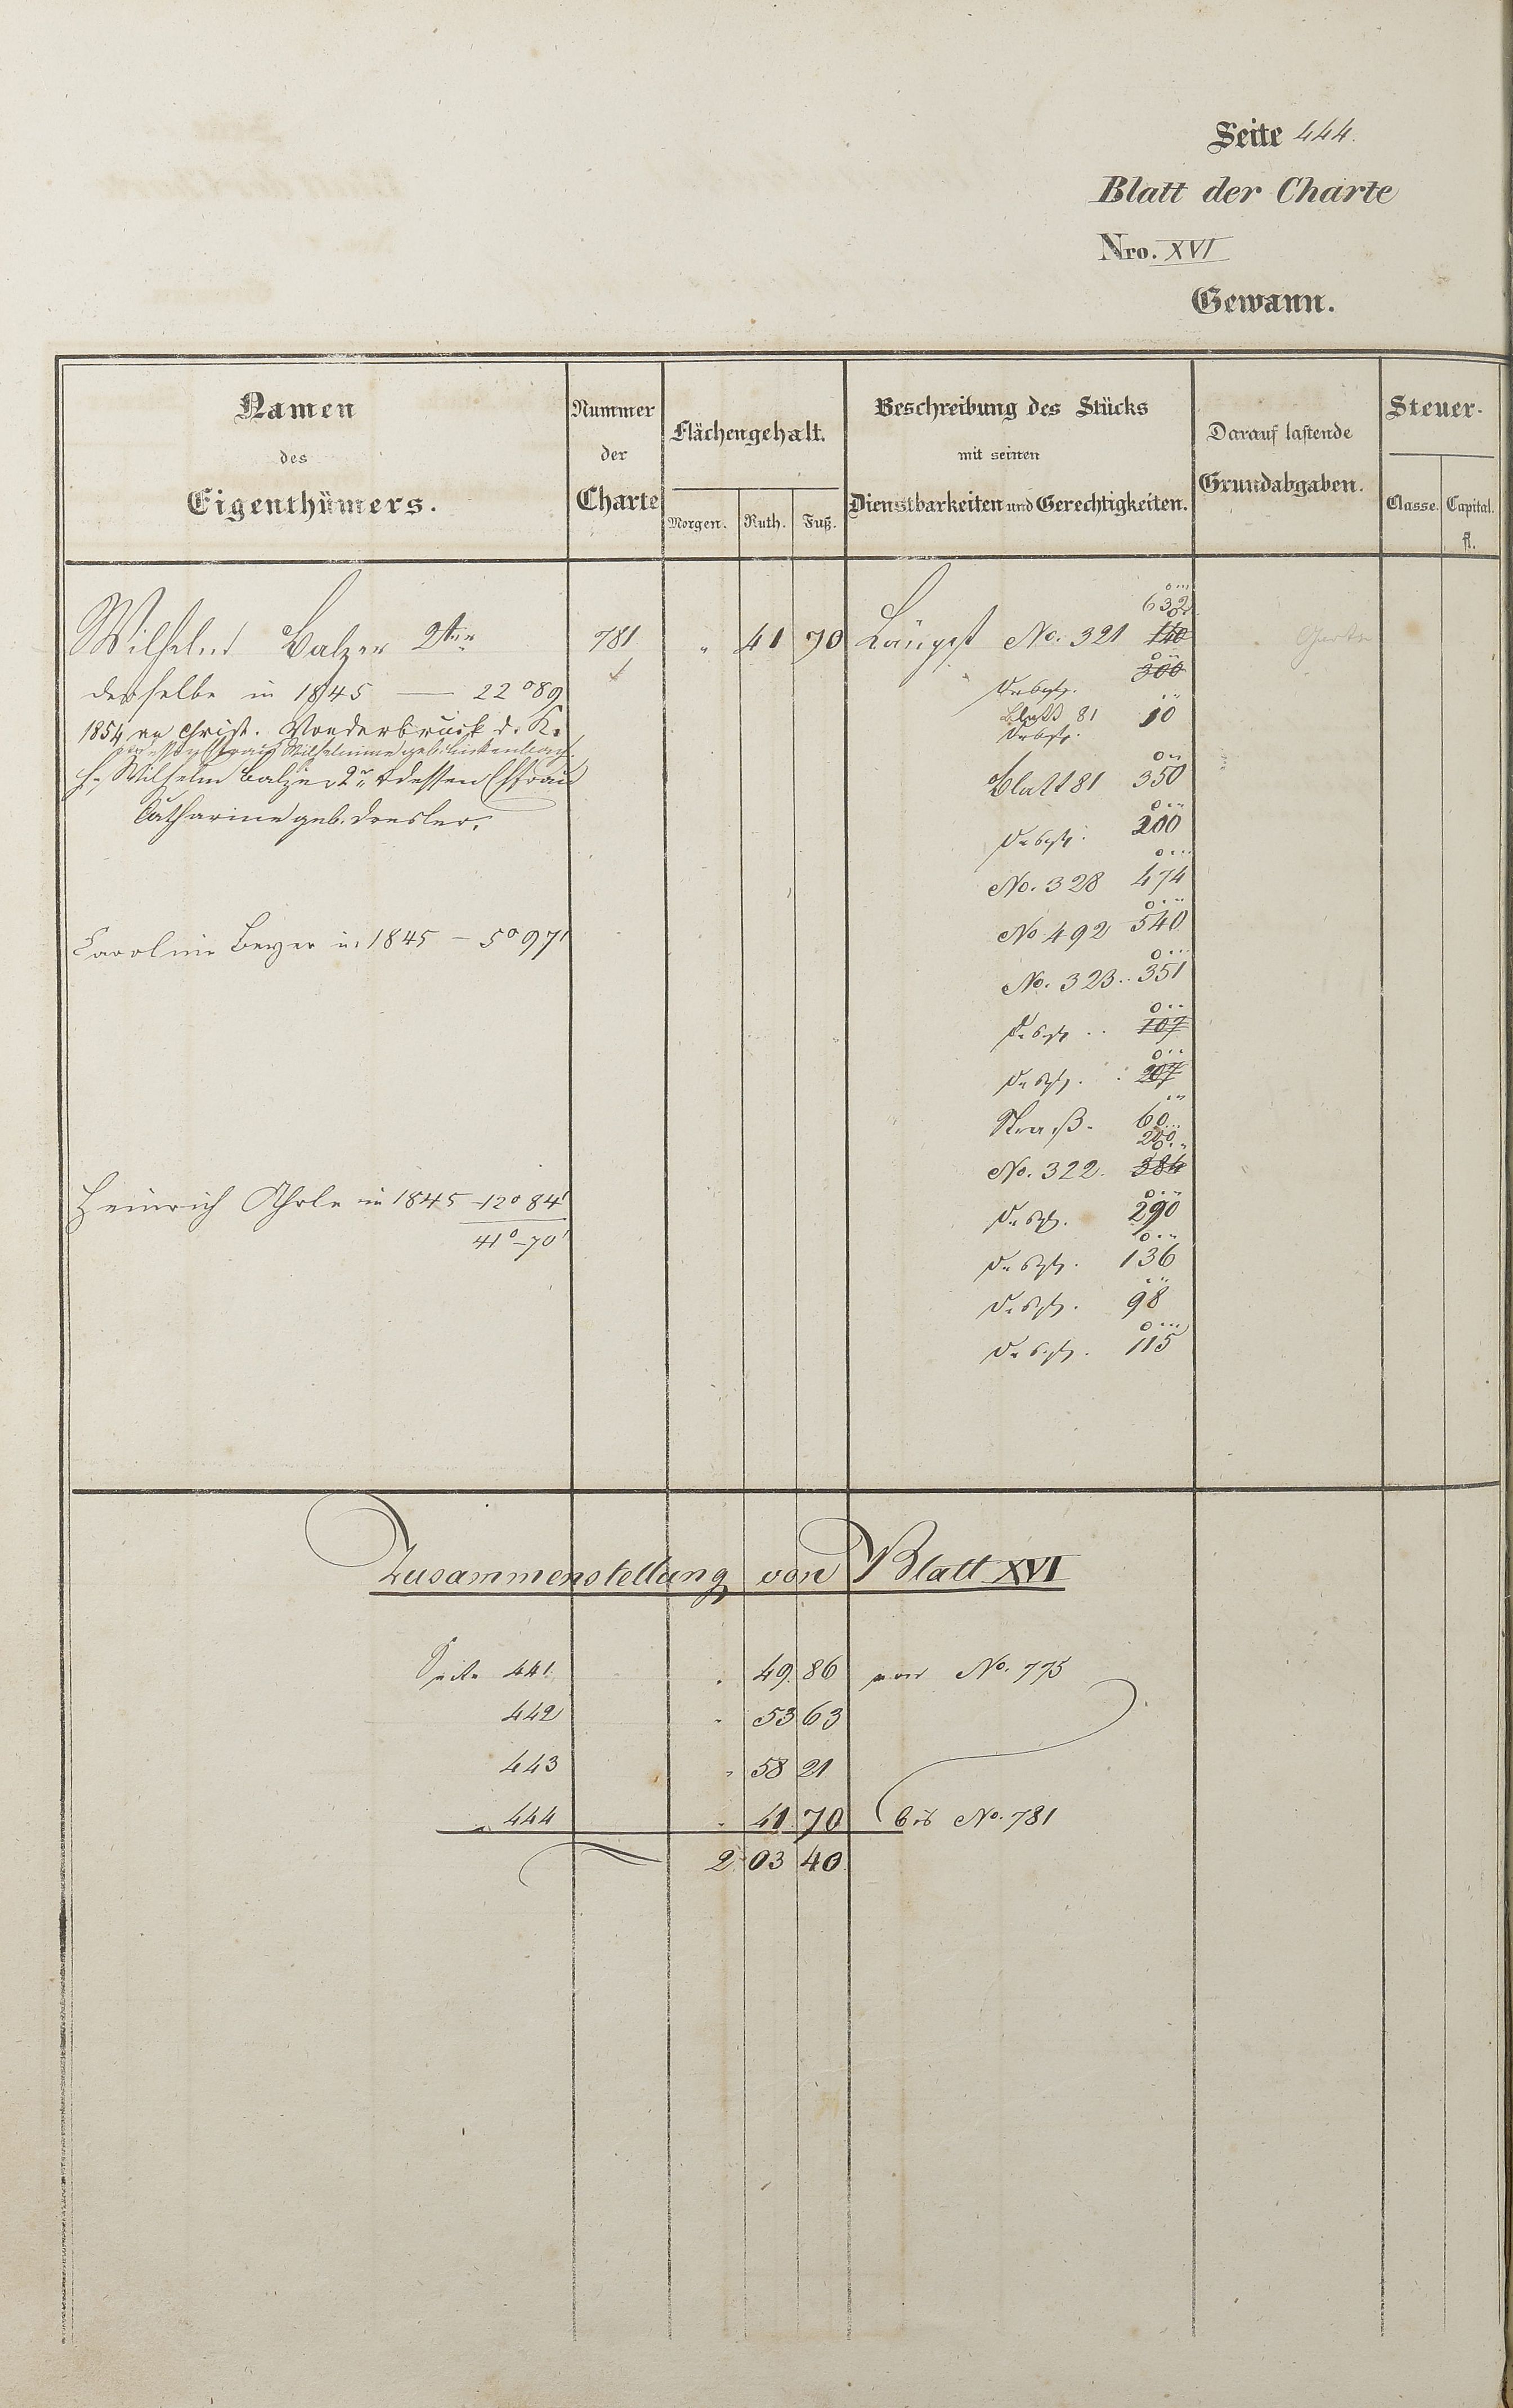 Seite 444.
Blatt der Charte
Nro. XVI
Gewann.
Namen des Eigenthümers.
Nummer der Charte
Flächengehalt.
Morgen. Ruth. Fuß.
Beschreibung des Stücks mit seinen Dienstbarkeiten und Gerechtigkeiten.
Darauf lastende Grundabgaben.
Steuer-
Classe. Capital. fl.
632
Wilhelm Balzer 2ter 781 " 41 70 Längst No. 321 140
300
derselbe in 1845 — 22° 89
Blatt 81 10
1854 an Christ. Vonderbruck d. K.
dessen Ehefrau Wilhelmine geb.
Wilhelm Balzer 2r & dessen Ehefrau
Blatt 81 350
Catharine geb. Dresler.
desgl. 200
No. 328 474
Caroline Beyer in 1845 — 5° 97'
No 492 540
No. 323 .. 351
desgl. .. 107
desgl. 207
Straß. 60
200
No. 322. 384
Heinrich Ohrle in 1845 — 12° 84'
desgl. 290
41° — 70'
desgl. 136
desgl. 98
desgl. 115
Zusammenstellung von Blatt XVI
Seite 441. " 49 86 von No. 775
442 " 53 63
443 " 58 21
444 " 41 70 bis No. 781
2 03 40